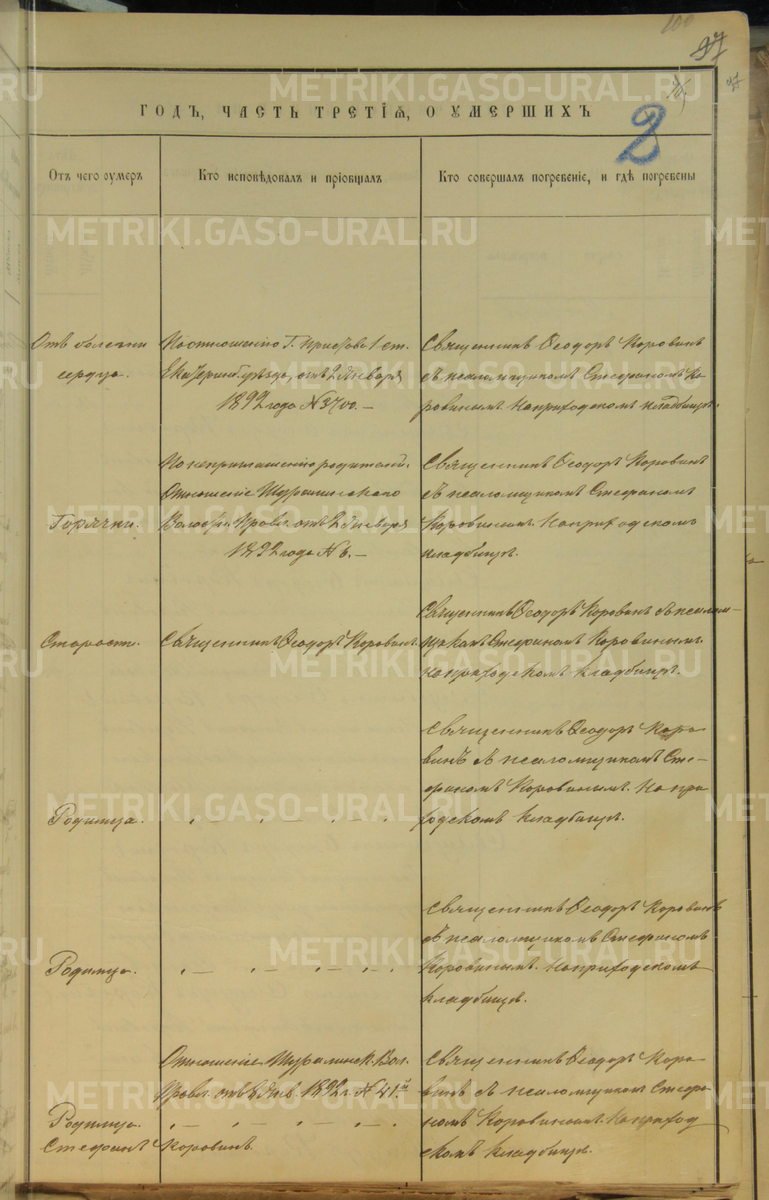 100
97
ГОДЪ, ЧАСТЬ ТРЕТІЯ, О УМЕРШИХЪ
2
Отъ чего оумеръ
Кто исповѣдовалъ и пріобщалъ
Кто совершалъ погребеніе, и гдѣ погребены
Отъ болезни
сердца.
По отношенію Г. Пристава 1 ст.
Екатеринб. уѣзда, отъ 2 Января
1892 года № 3700. —
Священникъ Ѳеодоръ Коровинъ
съ псаломщикомъ Стефаномъ Ко-
ровинымъ. На приходскомъ кладбищѣ.
Горячки.
По неприглашенію родителей.
Отношеніе Шуралинскаго
Волостн. Правл. отъ 2 Января
1892 года № 6. —
Священникъ Ѳеодоръ Коровинъ
съ псаломщикомъ Стефаномъ
Коровинымъ. На приходскомъ
кладбищѣ.
Старости.
Священникъ Ѳеодоръ Коровинъ.
Священникъ Ѳеодоръ Коровинъ съ псалом-
щикомъ Стефаномъ Коровинымъ.
на приходскомъ кладбищѣ.
Родимца.
„ — „ — „ — „
Священникъ Ѳеодоръ Коро-
винъ съ псаломщикомъ Сте-
фаномъ Коровинымъ. На при-
ходскомъ кладбищѣ.
Родимца.
„ — „ — „ — „
Священникъ Ѳеодоръ Коровинъ
съ псаломщикомъ Стефаномъ
Коровинымъ. На приходскомъ
кладбищѣ.
Родимца.
Отношеніе Шуралинск. Вол.
Правл. отъ Янв. 1892 г. № 41.й
„ — „ — „ — „
Священникъ Ѳеодоръ Коро-
винъ съ псаломщикомъ Стефа-
номъ Коровинымъ. На приход
скомъ кладбищѣ.
Стефанъ Коровинъ.
METRIKI.GASO-URAL.RU